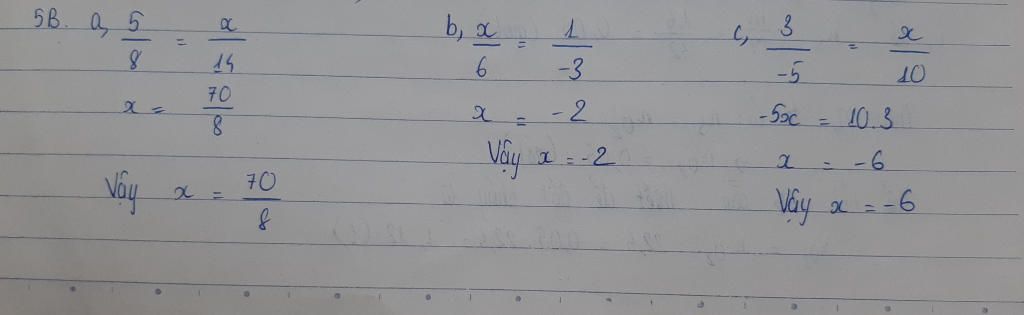 5B. a, 5/8 = x/14
x = 70/8
Vậy x = 70/8
b, x/6 = 1/-3
x = -2
Vậy x = -2
c, 3/-5 = x/10
-5x = 10.3
x = -6
Vậy x = -6